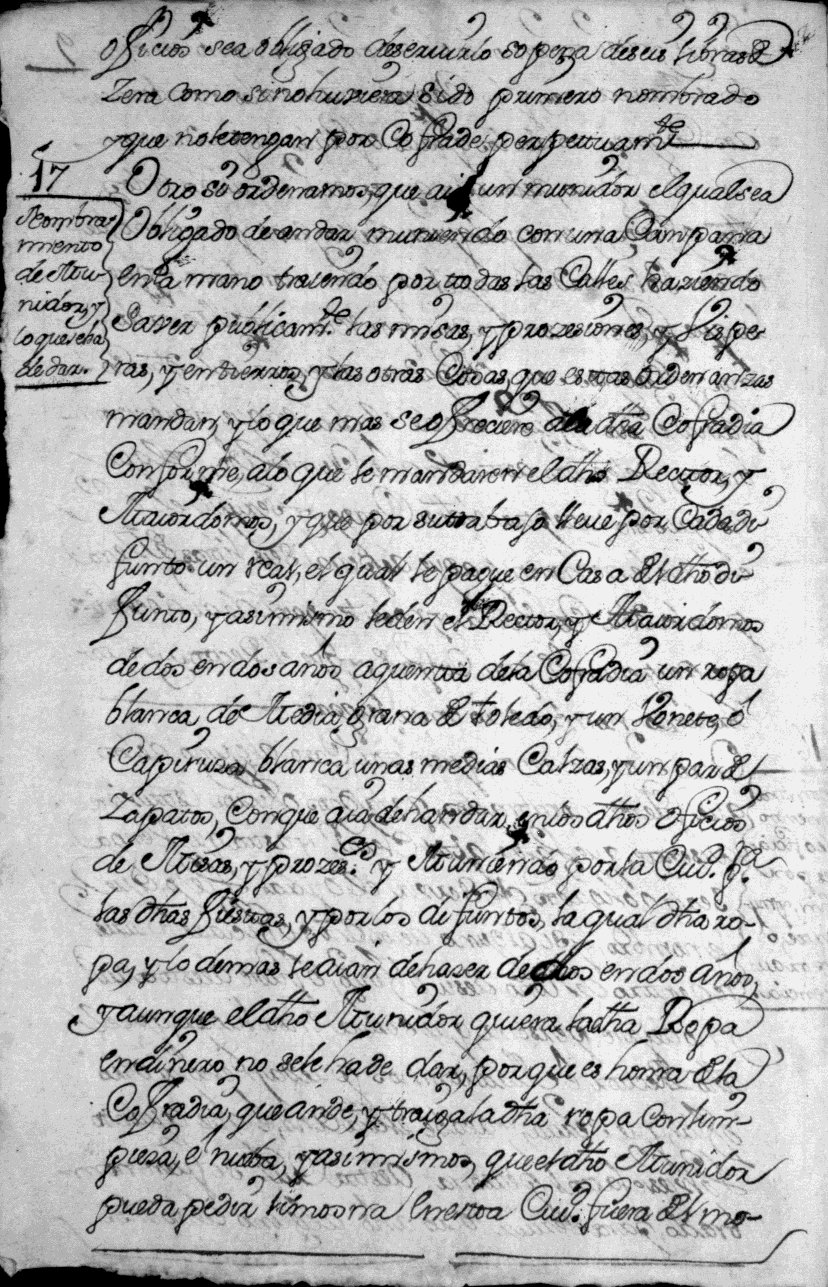 oficios sea obligado deservirlo so pena de seis libras de
Zera como si no huviera sido primero nombrado
y que no le tengan por Cofrade perpetuam.te
17
Nombra
miento
de Mu-
nidor, y
lo que se ha
de dar.
Otro si ordenamos, que aia un munidor el qual sea
Obligado de andar muniendo con una Campana
en la mano tañiendo por todas las Calles haziendo
Saver publicam.te las misas, y prozesiones, y Vispe-
ras, y entierros, y las otras Cosas, que estas Ordenanzas
mandan, y lo que mas se ofreciere de la dha Cofradia
Conforme, a lo que le mandaren el dho Rector, y
Maiordomos, y que por su trabajo lleve por Cada di-
funto un real, el qual se pague en Casa del dho di-
funto, y asimismo le den el Rector, y Maiordomos
de dos en dos años a quenta de la Cofradia un ropa
blanca, de Media grana de toledo, y un bonete, ó
Capiruza blanca unas medias Calzas, y un par de
Zapatos, Con que aia de handar en los dhos oficios
de Misas, y prozes.es y Muniendo por la Ciud. p.a
las dhas fiestas, y por los difuntos, la qual dha ro-
pa, y lo demas se aian de hazer de dos en dos años,
y aunque el dho Munidor quiera la dha Ropa
en dinero no se le ha de dar, porque es honra de la
Cofradia, que ande, y traiga la dha ropa con lim-
pieza, é nueba, y asimismo, que el dho Munidor
pueda pedir limosna en esta Ciud. fuera del mo-